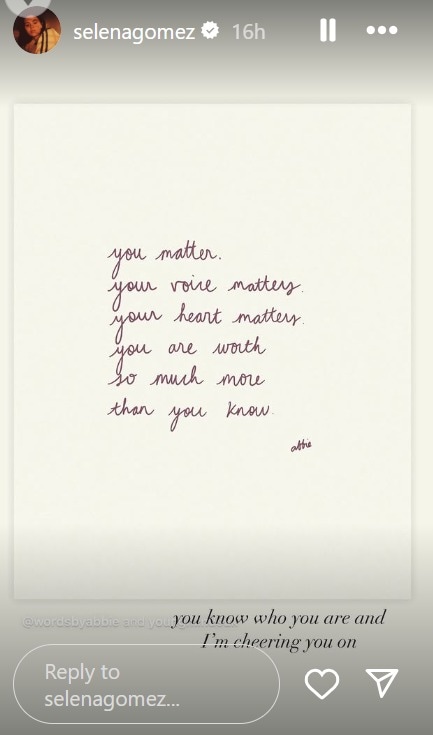 selenagomez 16h
you matter.
your voice matters.
your heart matters.
you are worth
so much more
than you know.
abbie
@wordsbyabbie and
you know who you are and
I'm cheering you on
Reply to
selenagomez...